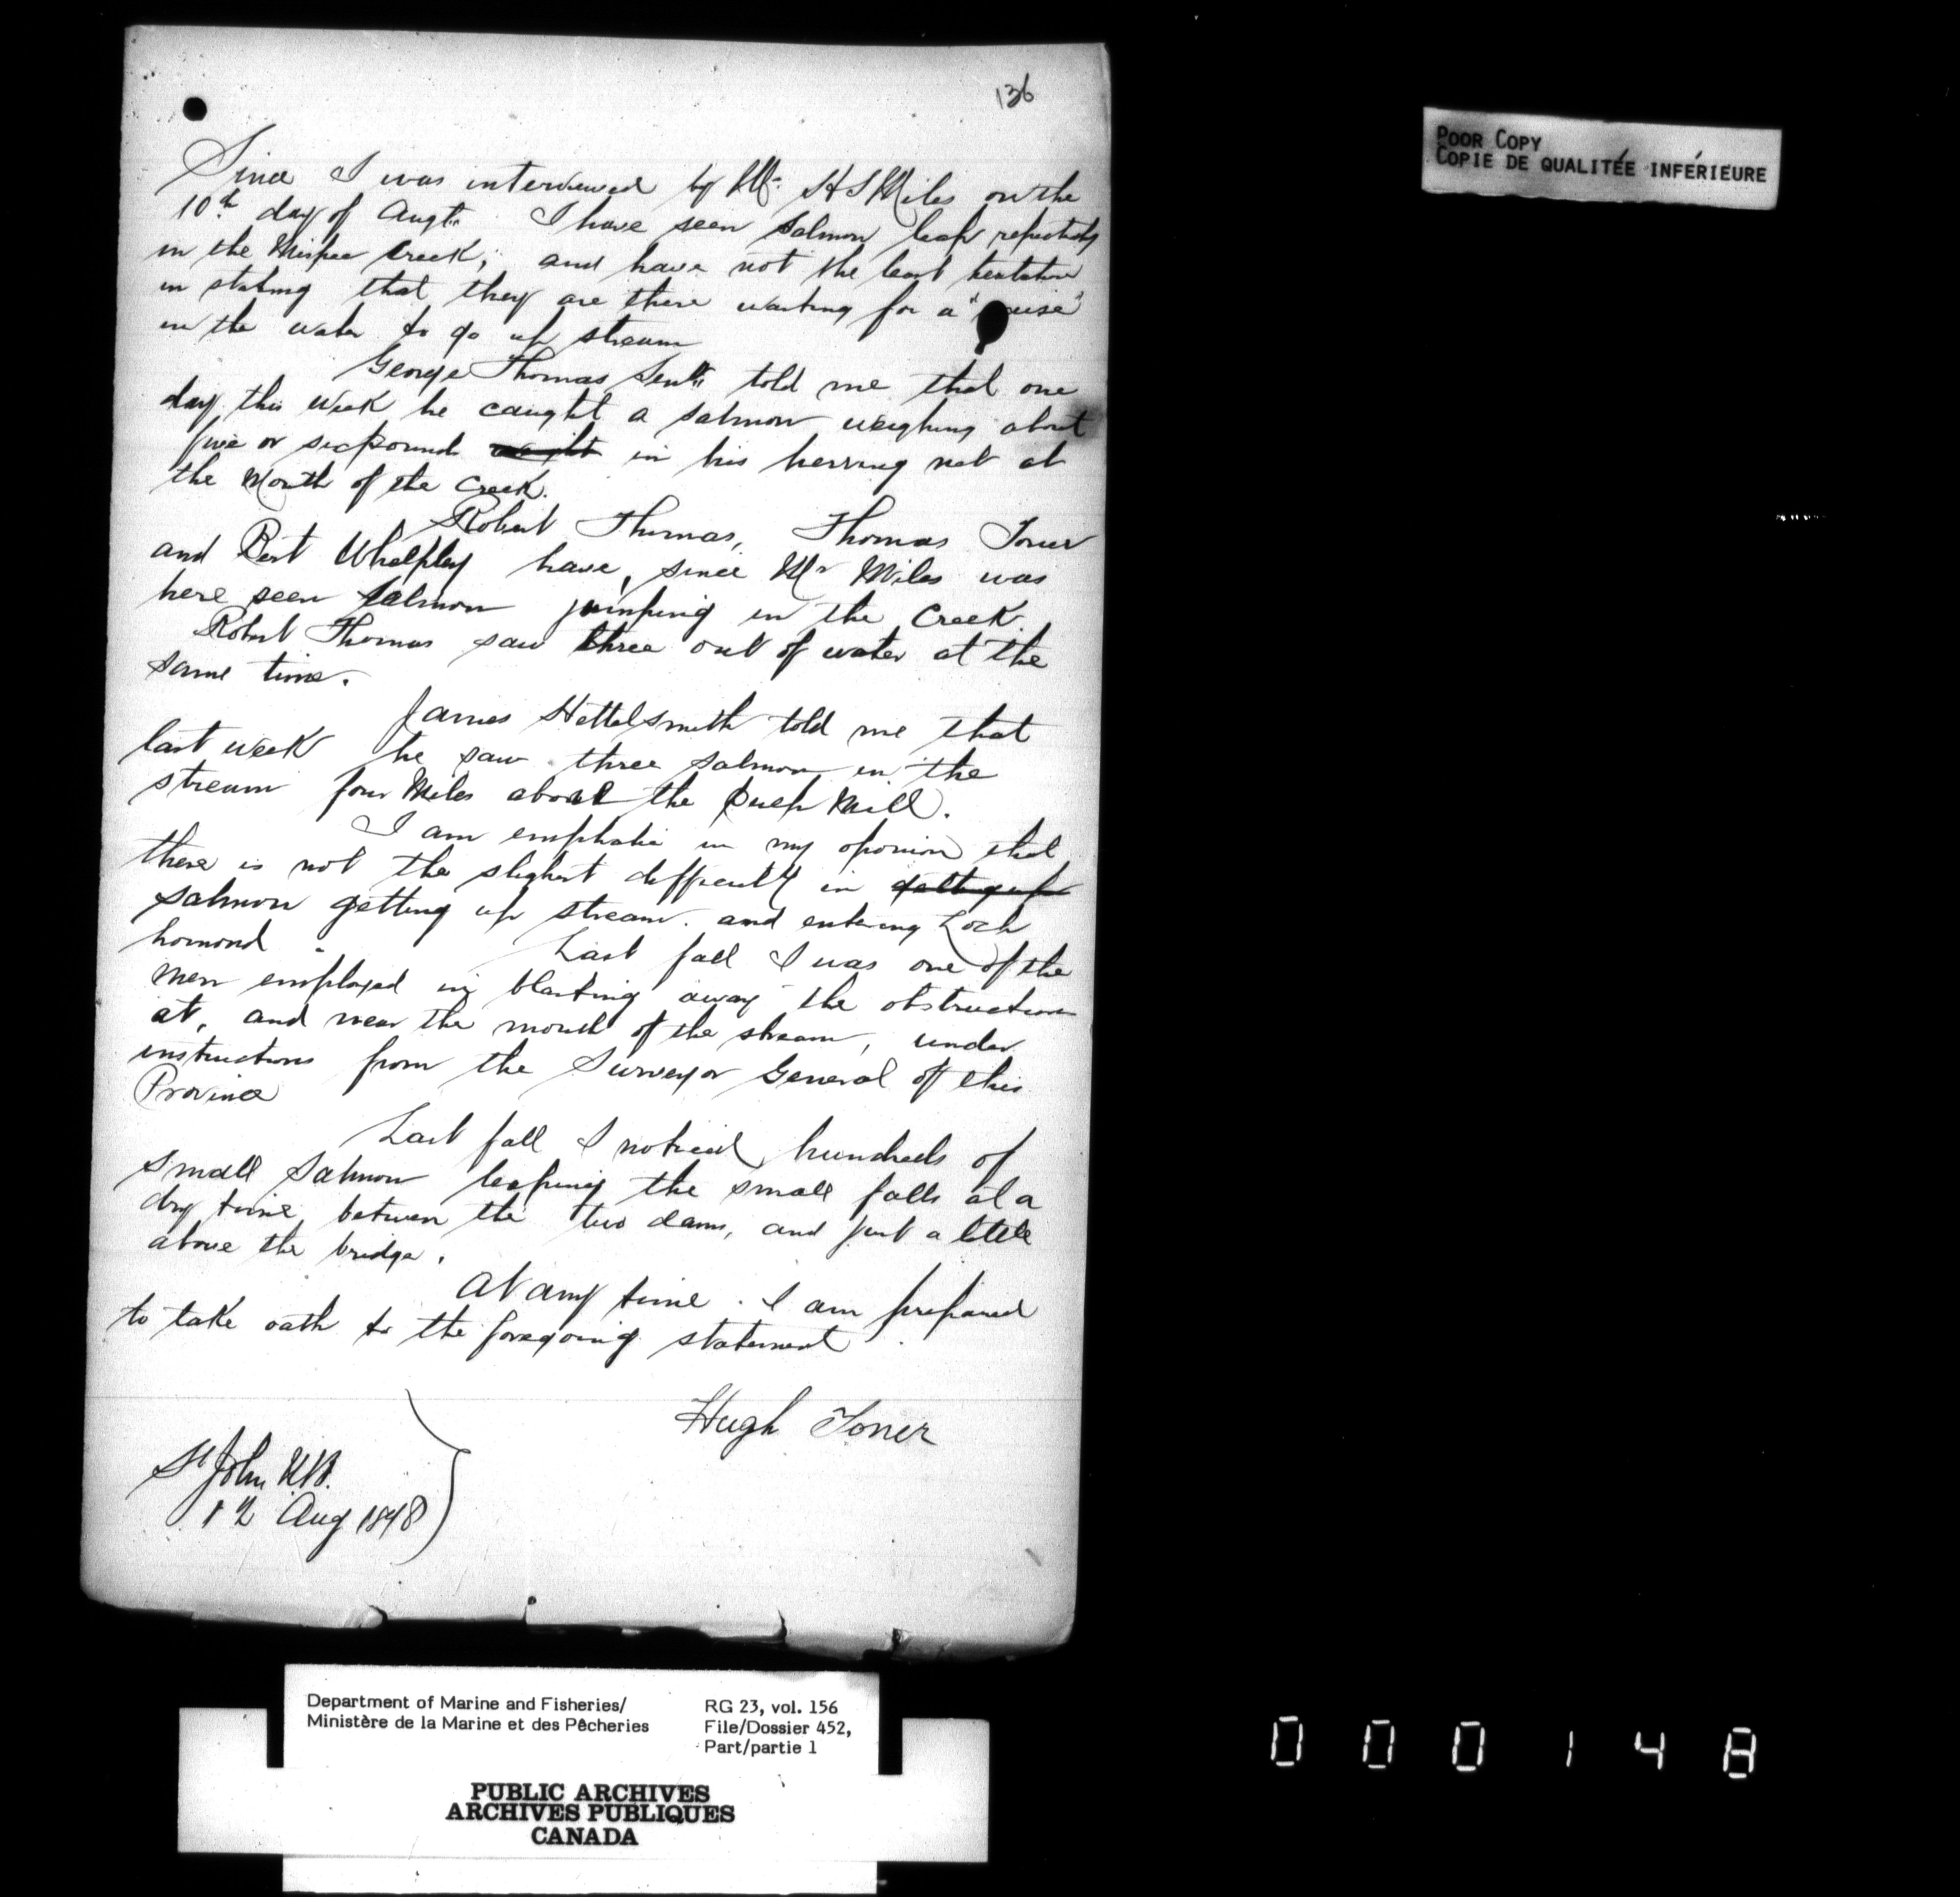 136
Since I was interviewed by Mr. H S Miles on the
10th day of Augt. I have seen Salmon leap repeatedly
in the Mispec Creek, and have not the least hesitation
in stating that they are there waiting for a "raise"
in the water to go up stream
George Thomas Senr. told me that one
day this week he caught a salmon weighing about
five or six pounds weight in his herring net at
the Mouth of the Creek.
Robert Thomas, Thomas Toner
and Bert Whelpley have, since Mr Miles was
here seen Salmon jumping in the Creek.
Robert Thomas saw three out of water at the
same time.
James Hettelsmith told me that
last week he saw three salmon in the
stream four Miles above the Pulp Mill.
I am emphatic in my opinion that
there is not the slighest difficulty in getting up
salmon getting up stream. and entering Loch
Lomond. Last fall I was one of the
men employed in blasting away the obstructions
at, and near the mouth of the stream, under
instructions from the Surveyor General of this
Province
Last fall I noticed hundreds of
small Salmon leaping the small falls at a
dry time between the two dams, and just a little
above the bridge.
At any time. I am prepared
to take oath to the foregoing statement
Hugh Toner
St John N.B.
12 Aug 1898
POOR COPY
COPIE DE QUALITÉE INFÉRIEURE
Department of Marine and Fisheries/
Ministère de la Marine et des Pêcheries
RG 23, vol. 156
File/Dossier 452,
Part/partie 1
PUBLIC ARCHIVES
ARCHIVES PUBLIQUES
CANADA
000148